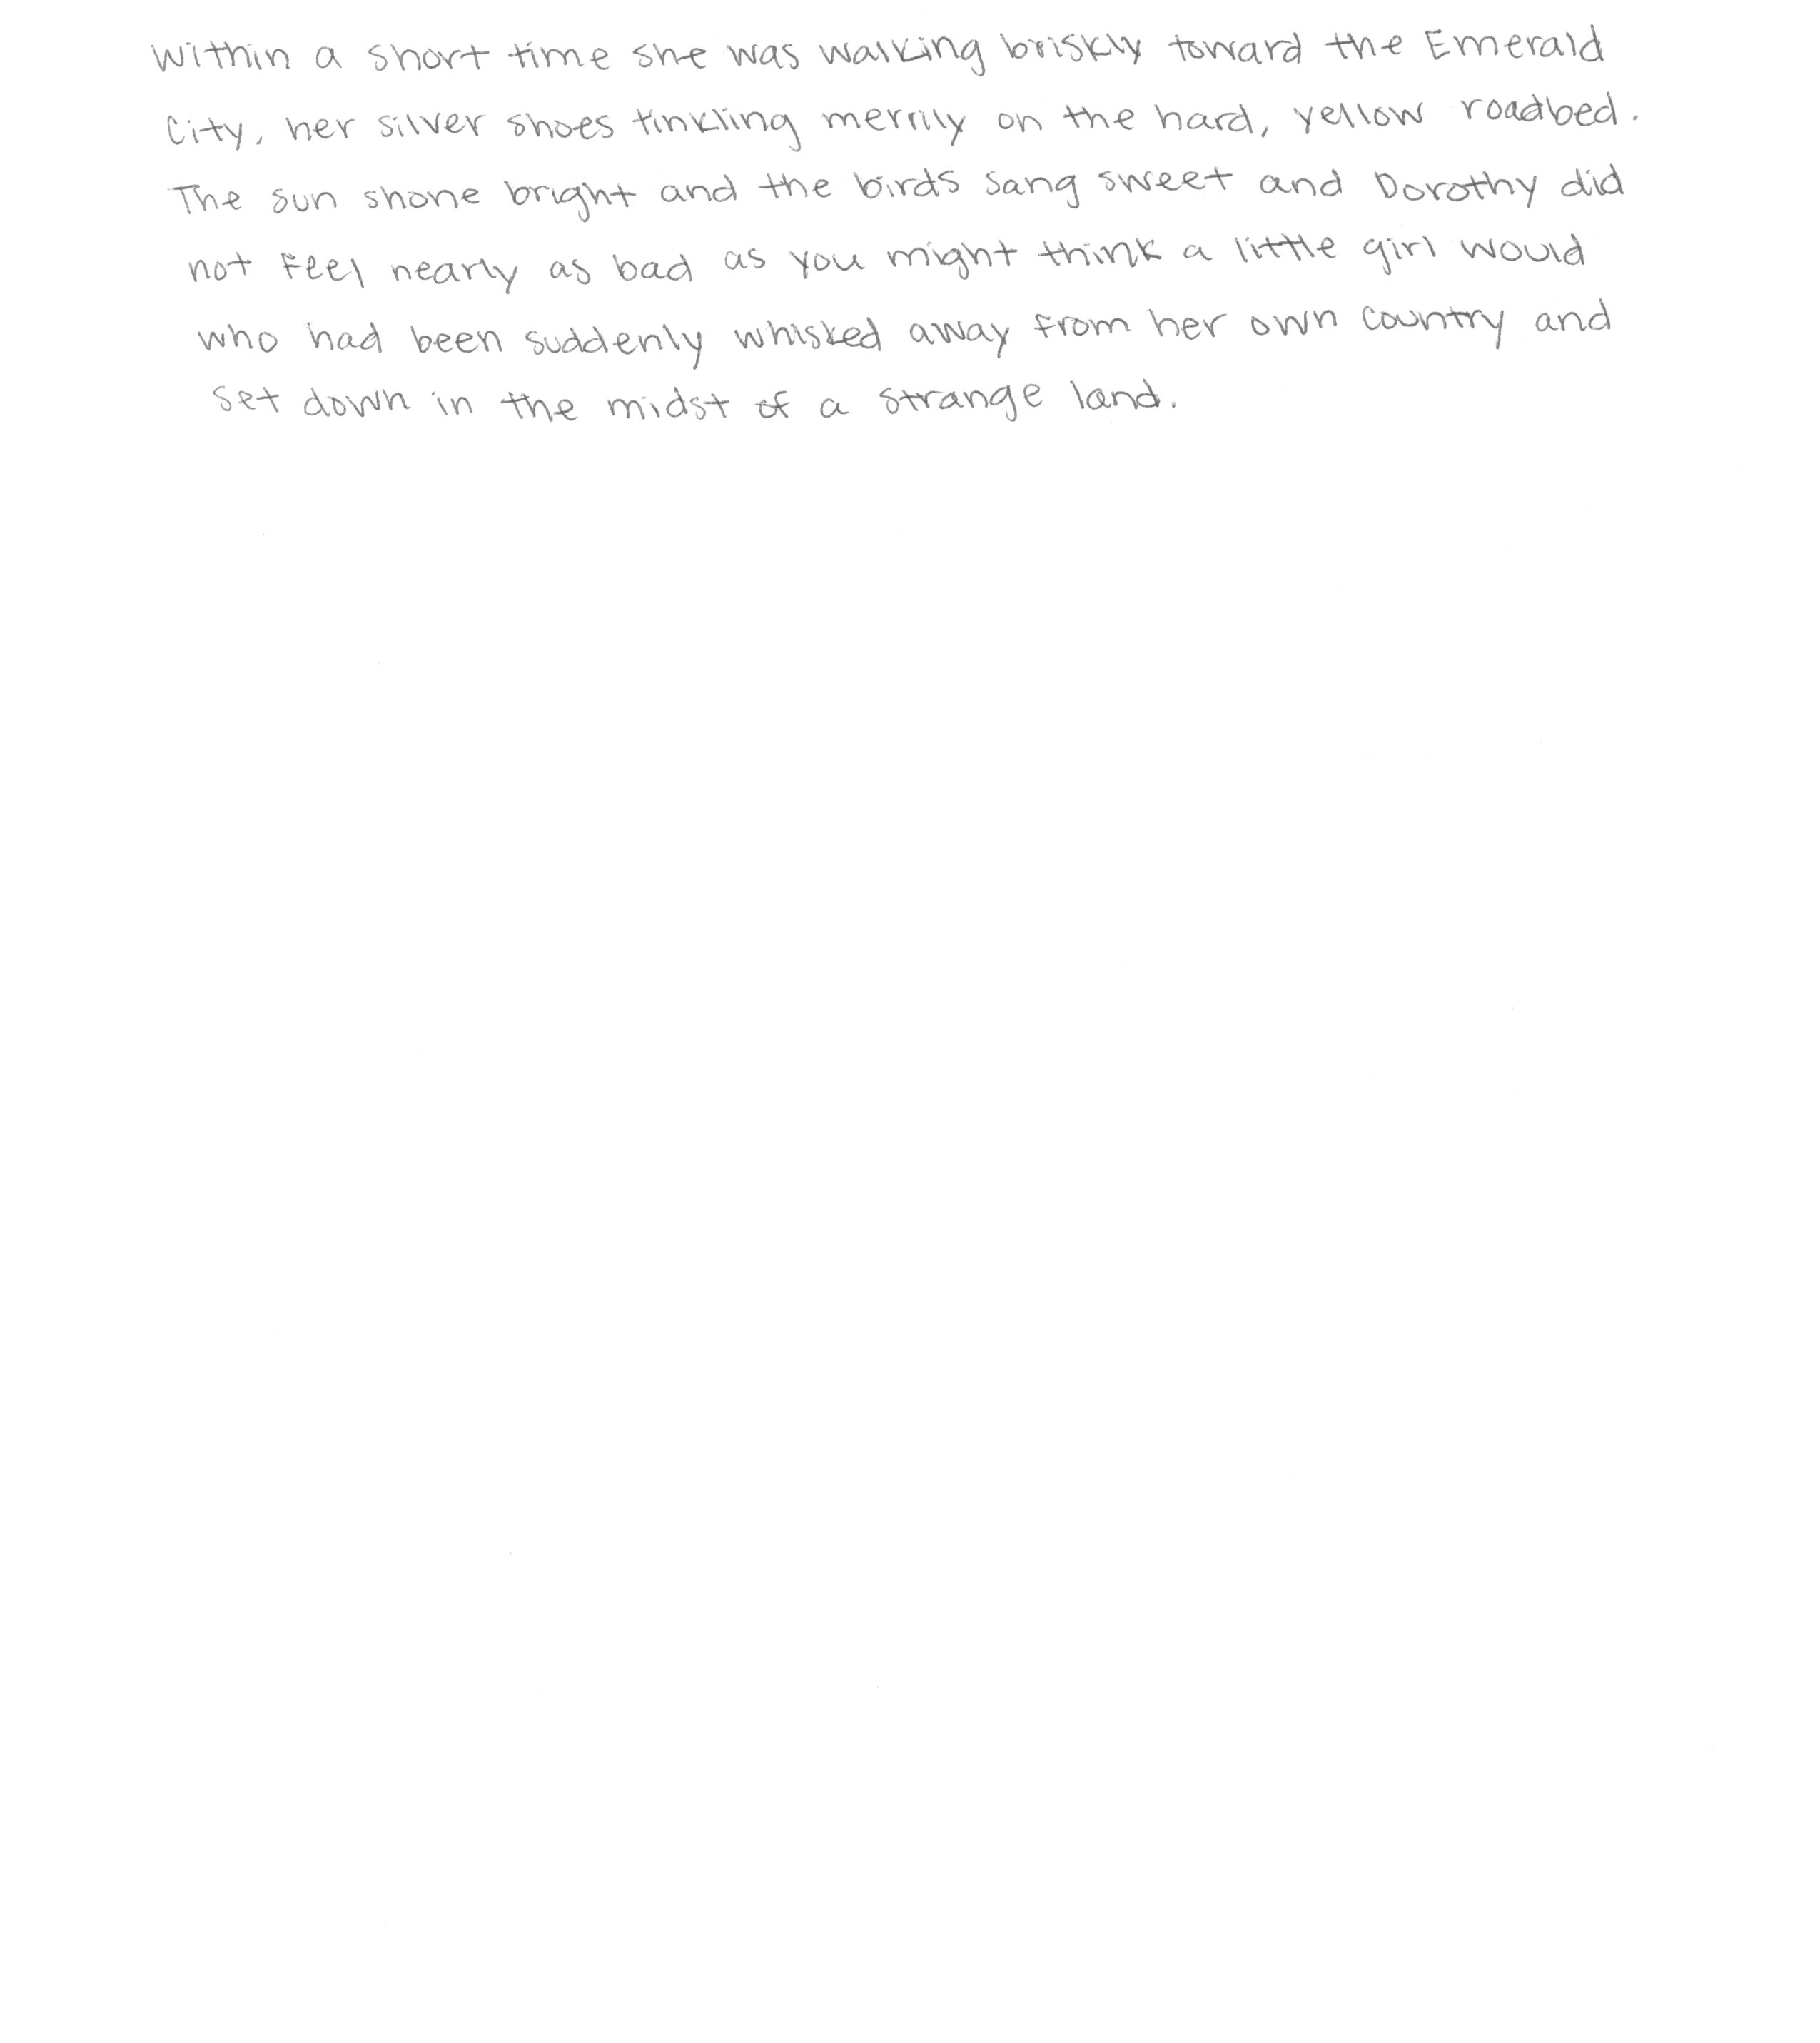 Within a short time she was walking briskly toward the Emerald
City, her silver shoes tinkling merrily on the hard, yellow roadbed.
The sun shone bright and the birds sang sweet and Dorothy did
not feel nearly as bad as you might think a little girl would
who had been suddenly whisked away from her own country and
set down in the midst of a strange land.